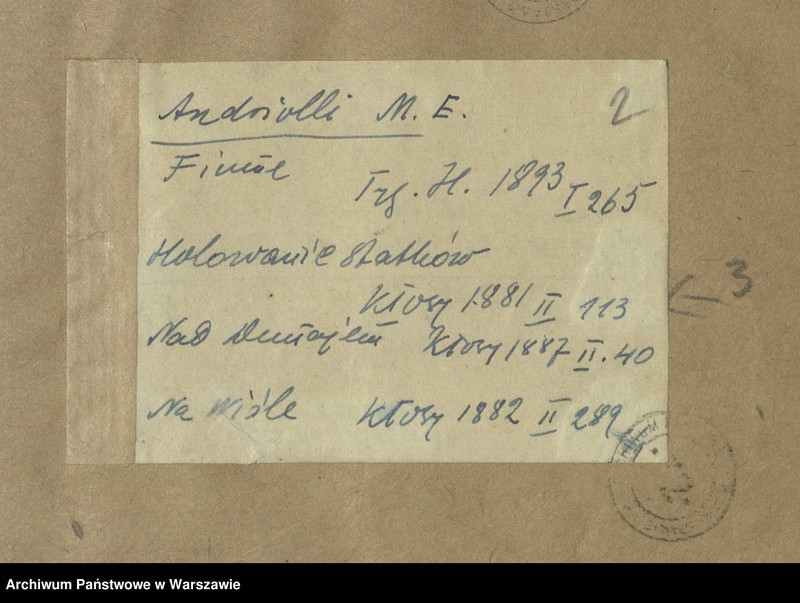 Andriolli M. E. 2
Fiume Tyg. Il. 1893 I 265
Holowanie statków
Kłosy 1881 II 113
Nad Dunajem Kłosy 1887 II. 40
Na Wiśle Kłosy 1882 II 289
3
Archiwum Państwowe w Warszawie